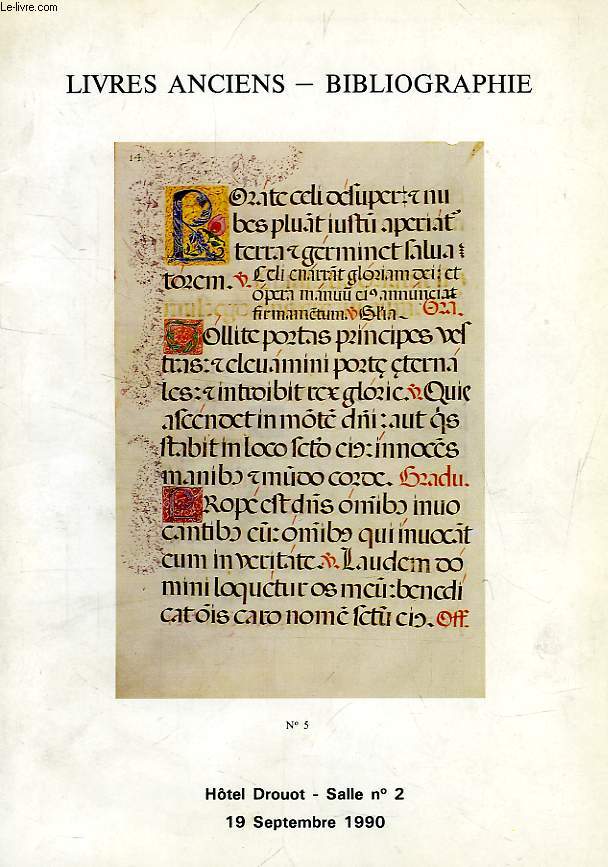 Le-livre.com
LIVRES ANCIENS – BIBLIOGRAPHIE
14
Roráte celi désuper: ⁊ nu
bes pluāt iustū aperiat᷑
terra ⁊ gérminet salua⸗
tórem. ℣. Celi enarrāt glóriam dei: et
ópera mánuū eiꝰ annúnciat
firmaméntum ℣ Glia. Gra.
Tollite portas príncipes ves
tras: ⁊ eleuámini portę ęterná
les: ⁊ introíbit rex glórie. ℣. Quis
ascéndet in mōtē dñi: aut q̇s
stabit in loco scto eiꝰ: ínnocēs
manibꝰ ⁊ mūdo corde. Gradu.
Prope est dñs ómībꝰ inuo
cantibꝰ eū: ómībꝰ qui ínuocāt
eum in veritáte. ℣. Laudem dó
mini loquétur os meū: benedí
cat ōis caro nomē sctū eiꝰ. Off.
Nº 5
Hôtel Drouot - Salle nº 2
19 Septembre 1990